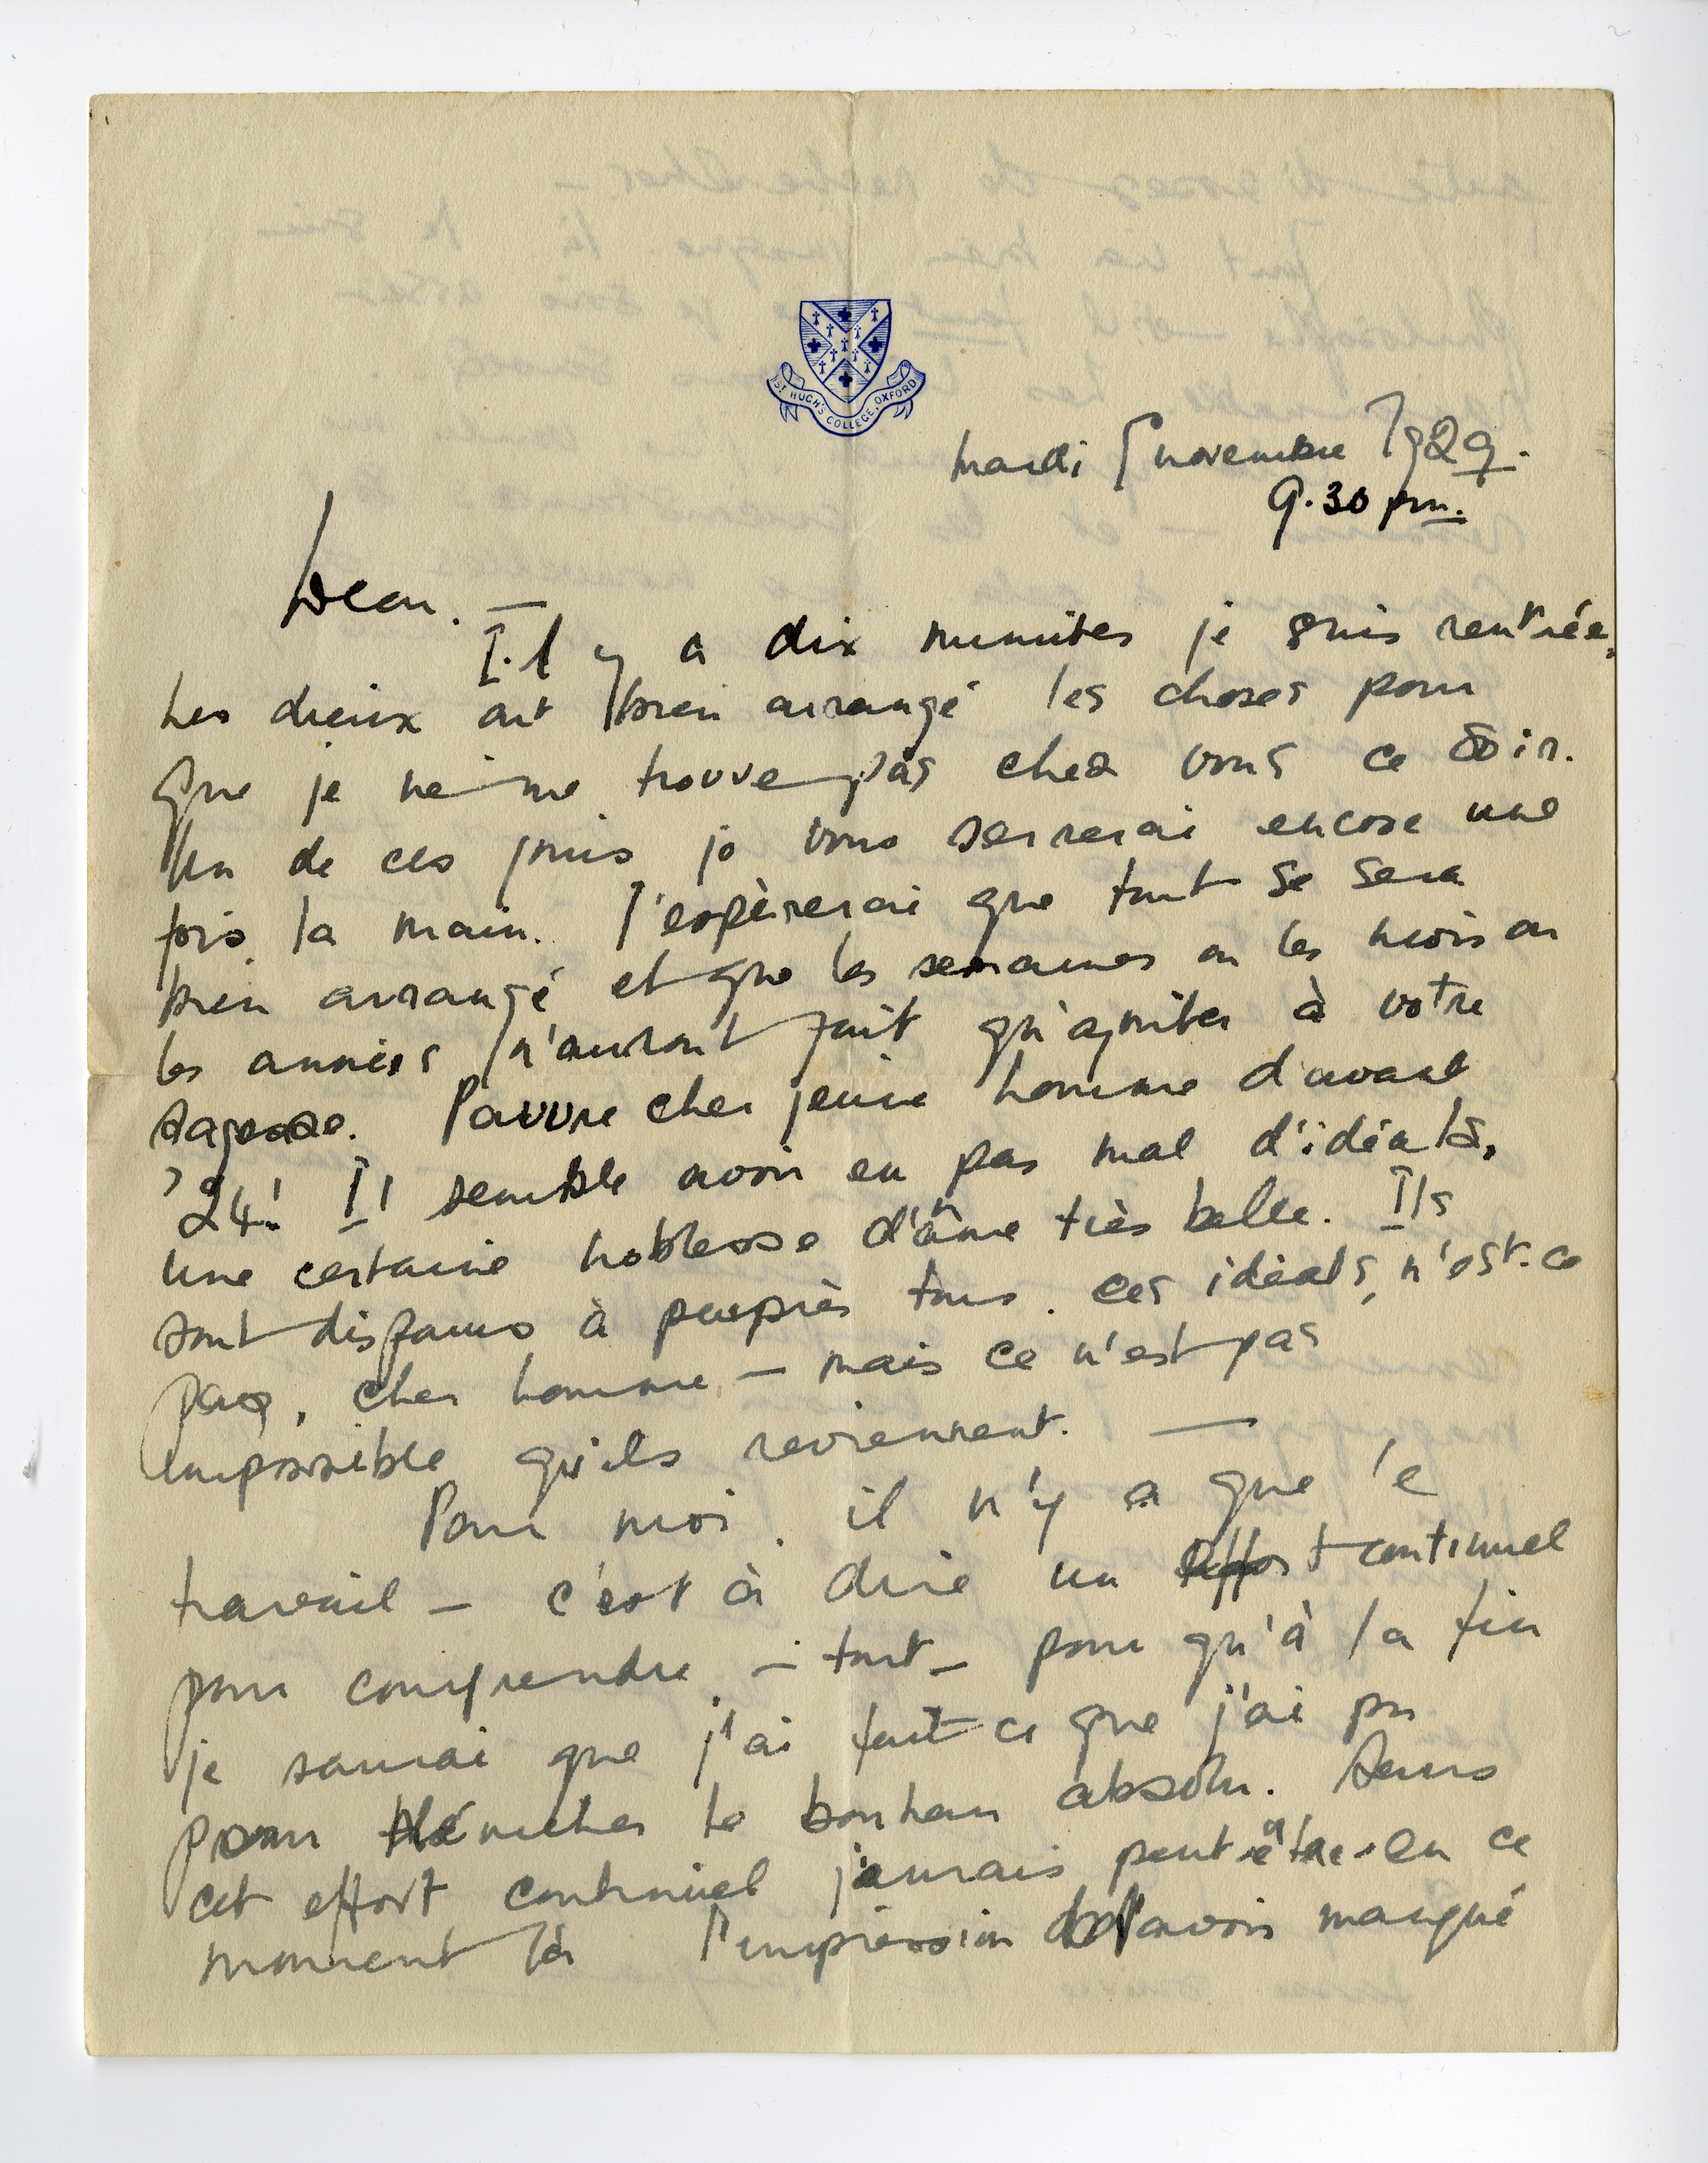 ST HUGH'S COLLEGE, OXFORD
mardi 5 novembre 1929.
9.30 pm.
Dear. —
Il y a dix minutes je suis rentrée.
Les dieux ont bien arrangé les choses pour
que je ne me trouve pas chez vous ce soir.
Un de ces jours je vous serrerai encore une
fois la main. J'espèrerai que tout se sera
bien arrangé et que les semaines ou les mois ou
les années n'auront fait qu'ajouter à votre
sagesse. Pauvre cher jeune homme d'avant
'24! Il semble avoir eu pas mal d'idéals,
une certaine noblesse d'âme très belle. Ils
sont disparus à peuprès tous. ces idéals, n'est-ce
pas, cher homme — mais ce n'est pas
impossible qu'ils reviennent. —
Pour moi, il n'y a que le
travail — c'est à dire un effort continuel
pour comprendre — tout — pour qu'à la fin
je saurai que j'ai fait ce que j'ai pu
pour dénicher le bonheur absolu. Sans
cet effort continuel j'aurais peut-être en ce
moment là l'impression d'avoir manqué